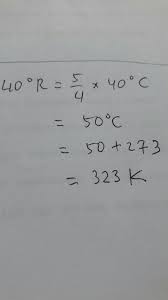 40°R = 5/4 × 40°C
= 50°C
= 50 + 273
= 323 K